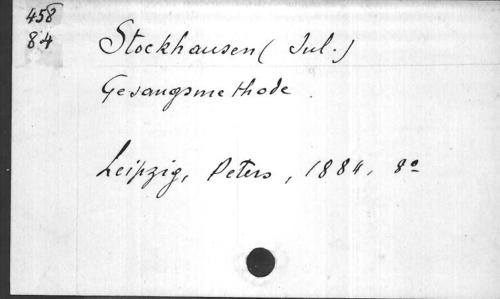 458
84
Stockhausen (Jul.)
Gesangsmethode.
Leipzig, Peters, 1884, 8º